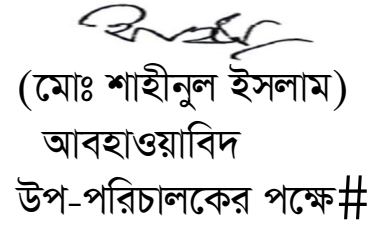 (মোঃ শাহীনুল ইসলাম)
আবহাওয়াবিদ
উপ-পরিচালকের পক্ষে#